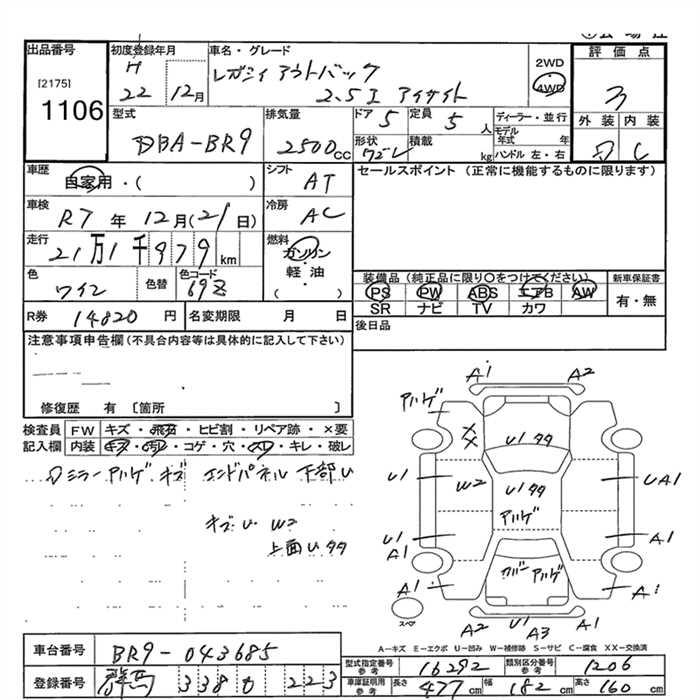 出品番号
[2175]
1106
初度登録年月
H
22 12月
車名・グレード
レガシィ アウトバック
2.5I アイサイト
2WD
4WD
評価点
3
外装 内装
C
型式
DBA-BR9
排気量
2500cc
ドア
5
定員
5人
形状
ワゴン
積載
kg
ディーラー・並行
モデル年式 年
ハンドル 左・右
車歴
自家用・( )
シフト
AT
車検
R7年 12月(21日)
冷房
AC
走行
21万1千979km
燃料
ガソリン
軽油
・( )
色
ワイン
色替
色コード
69Z
R券 14820円
名変期限 月 日
セールスポイント (正常に機能するものに限ります)
装備品 (純正品に限り○をつけてください)
新車保証書
PS PW ABS エアB AW
SR ナビ TV カワ
有・無
後日品
注意事項申告欄(不具合内容等は具体的に記入して下さい)
修復歴 有 〔箇所 〕
検査員記入欄
FW キズ・飛石・ヒビ割・リペア跡・×要
内装 キズ・汚レ・コゲ・穴・スレ・キレ・破レ
ミラー アハゲ キズ エンドパネル 下部U
キズ U W2
上面Uタタ
A1 A2
アハゲ
XX
U1タタ
U1 W2 U1タタ UA1
アハゲ
U1 A1
A1
A1
ガバー アハゲ
A1
スペア
A2 U1 A3 A1
A-キズ E-エクボ U-凹み W-補修跡 S-サビ C-腐食 XX-交換済
車台番号 BR9-043685
登録番号 群馬 338 223
型式指定番号 参考 16292
類別区分番号 参考 1206
車庫証明用 参考 長さ 477cm 幅 182cm 高さ 160cm